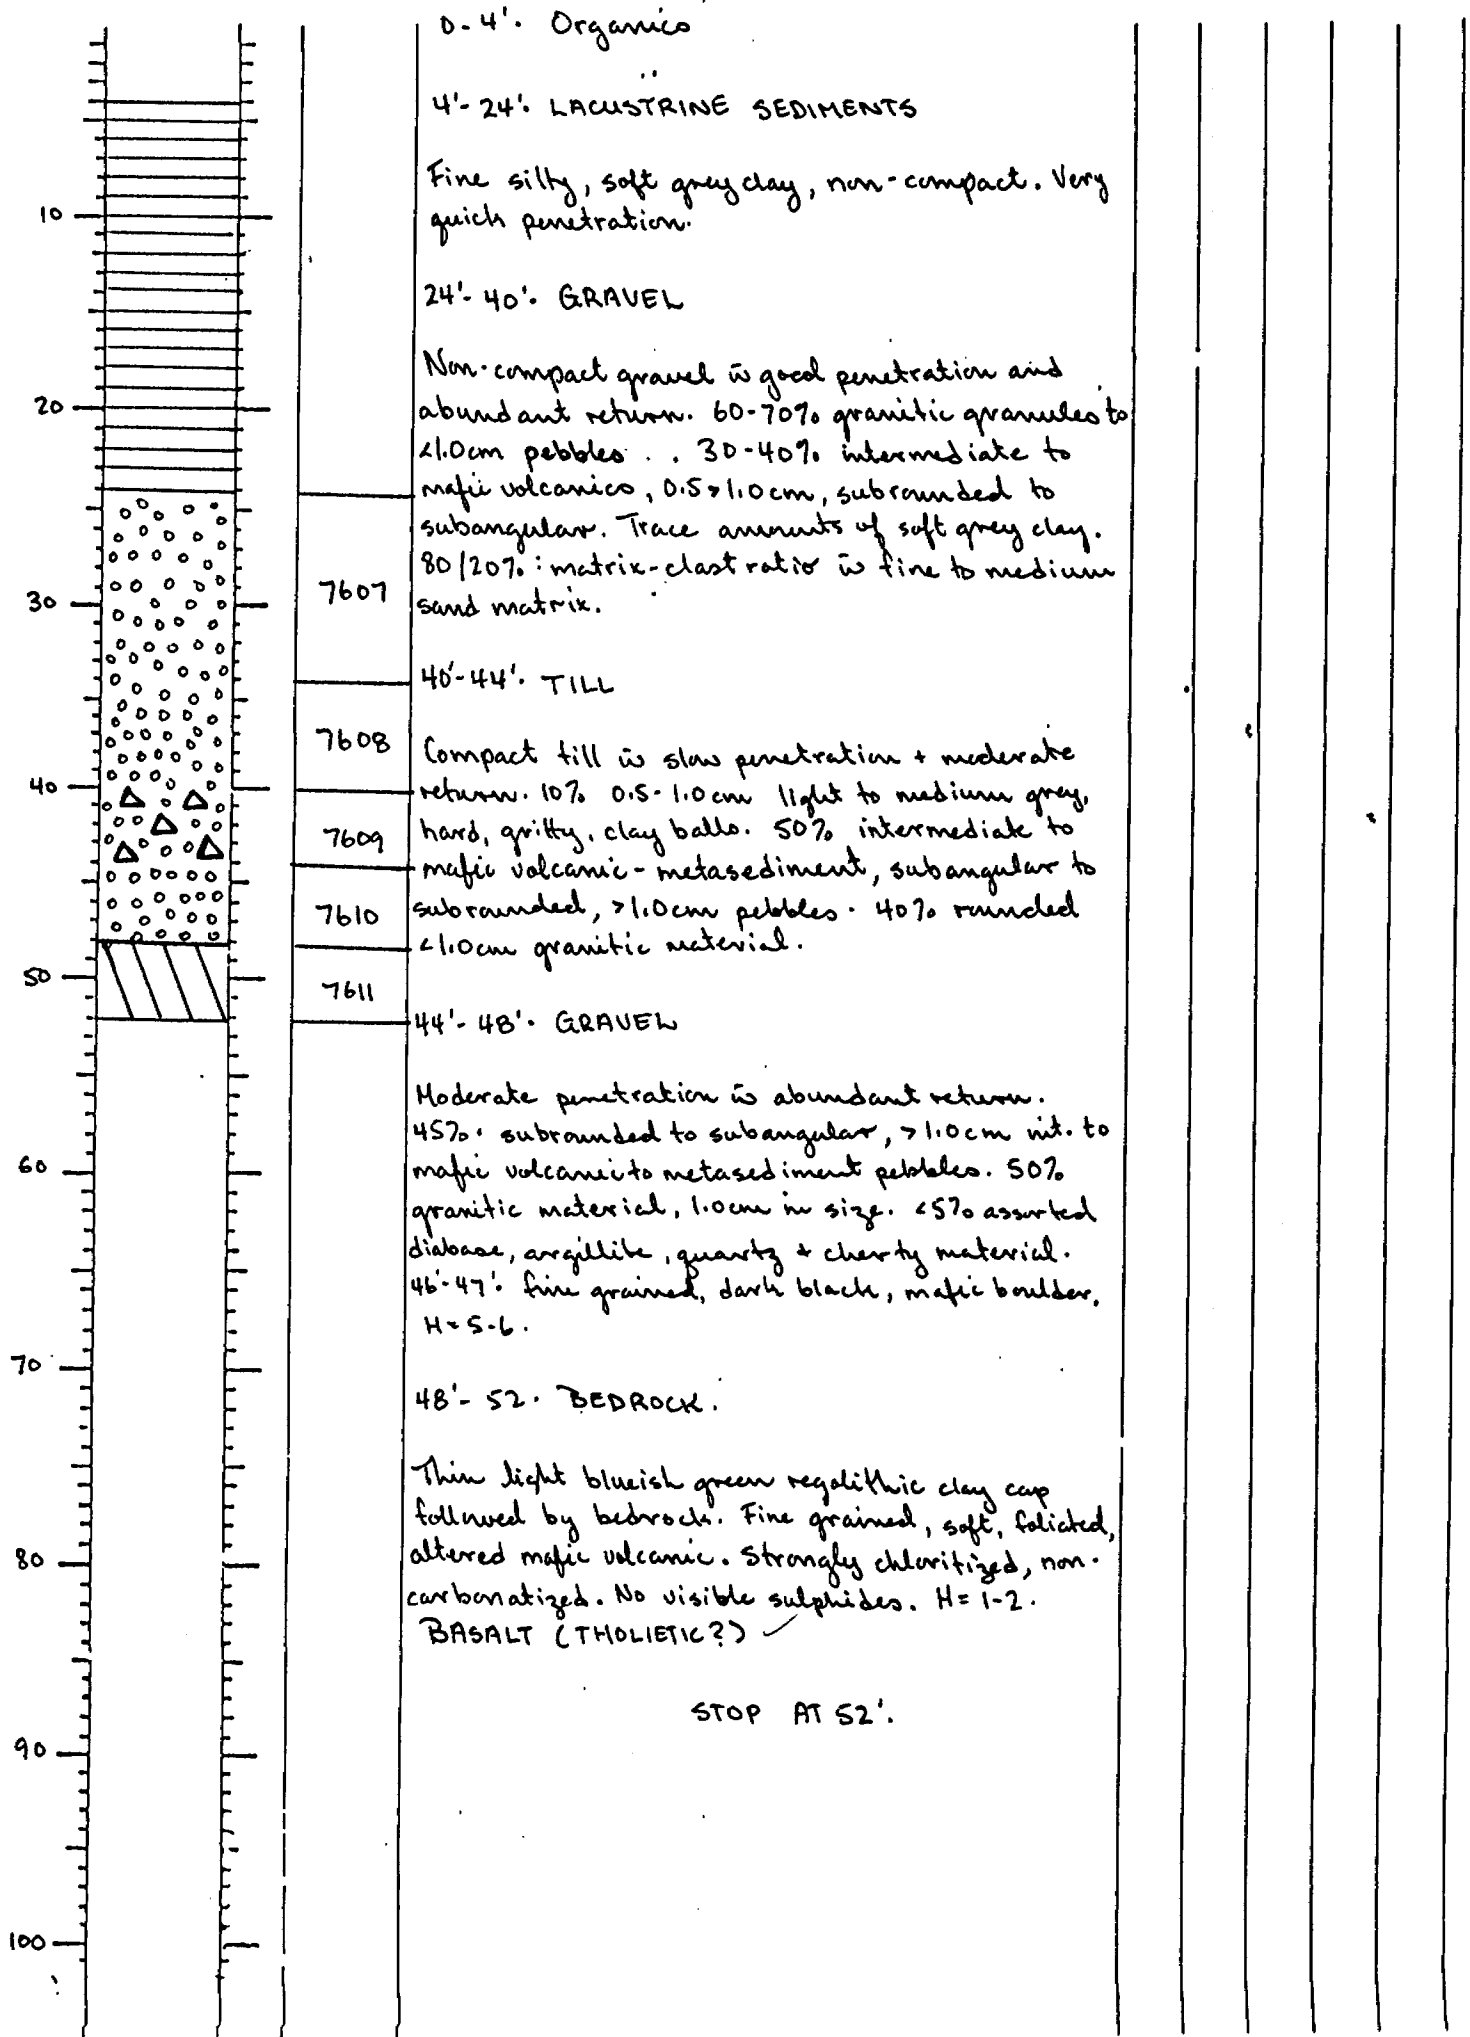 0-4'. Organics
4'-24'. LACUSTRINE SEDIMENTS
Fine silty, soft grey clay, non-compact. Very
quick penetration.
24'-40'. GRAVEL
Non-compact gravel w̄ good penetration and
abundant return. 60-70% granitic granules to
<1.0cm pebbles . . 30-40% intermediate to
mafic volcanics, 0.5>1.0cm, subrounded to
subangular. Trace amounts of soft grey clay.
80/20% : matrix-clast ratio w̄ fine to medium
sand matrix.
40'-44'. TILL
Compact till w̄ slow penetration + moderate
return. 10% 0.5-1.0cm light to medium grey,
hard, gritty, clay balls. 50% intermediate to
mafic volcanic-metasediment, subangular to
subrounded, >1.0cm pebbles. 40% rounded
<1.0cm granitic material.
44'-48'. GRAVEL
Moderate penetration w̄ abundant return.
45%. subrounded to subangular, >1.0cm int. to
mafic volcanic to metasediment pebbles. 50%
granitic material, 1.0cm in size. <5% assorted
diabase, argillite, quartz + cherty material.
46'-47'. fine grained, dark black, mafic boulder,
H=5-6.
48'-52. BEDROCK.
Thin light blueish green regolithic clay cap
followed by bedrock. Fine grained, soft, foliated,
altered mafic volcanic. Strongly chloritized, non-
carbonatized. No visible sulphides. H=1-2.
BASALT (THOLIETIC?) ✓
STOP AT 52'.
7607
7608
7609
7610
7611
10
20
30
40
50
60
70
80
90
100